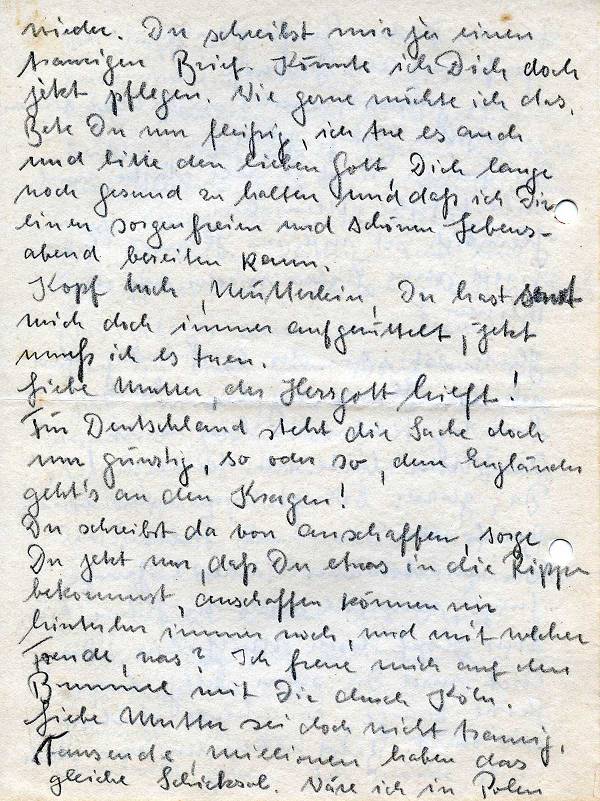 wieder. Du schreibst mir ja einen
traurigen Brief. Könnte ich Dich doch
jetzt pflegen. Wie gerne möchte ich das.
Bete Du nur fleißig, ich tue es auch
und bitte den lieben Gott, Dich lange
noch gesund zu halten und, daß ich Dir
einen sorgenfreien und schönen Lebens-
abend bereiten kann.
Kopf hoch, Mütterlein, Du hast sonst
mich doch immer aufgerüttelt, jetzt
muß ich es tuen.
Liebe Mutter, der Herrgott hieft!
Für Deutschland steht die Sache doch
nur günstig, so oder so, dem Engländer
geht's an den Kragen!
Du schreibst da von anschaffen, sorge
Du jetzt nur, daß Du etwas in die Rippen
bekommst, anschaffen können wir
hinterher immer noch, und mit welcher
Freude, was? Ich freue mich auf den
Bummel mit Dir durch Köln.
Liebe Mutter sei doch nicht traurig,
Tausende, millionen haben das
gleiche Schicksal. Wäre ich in Polen